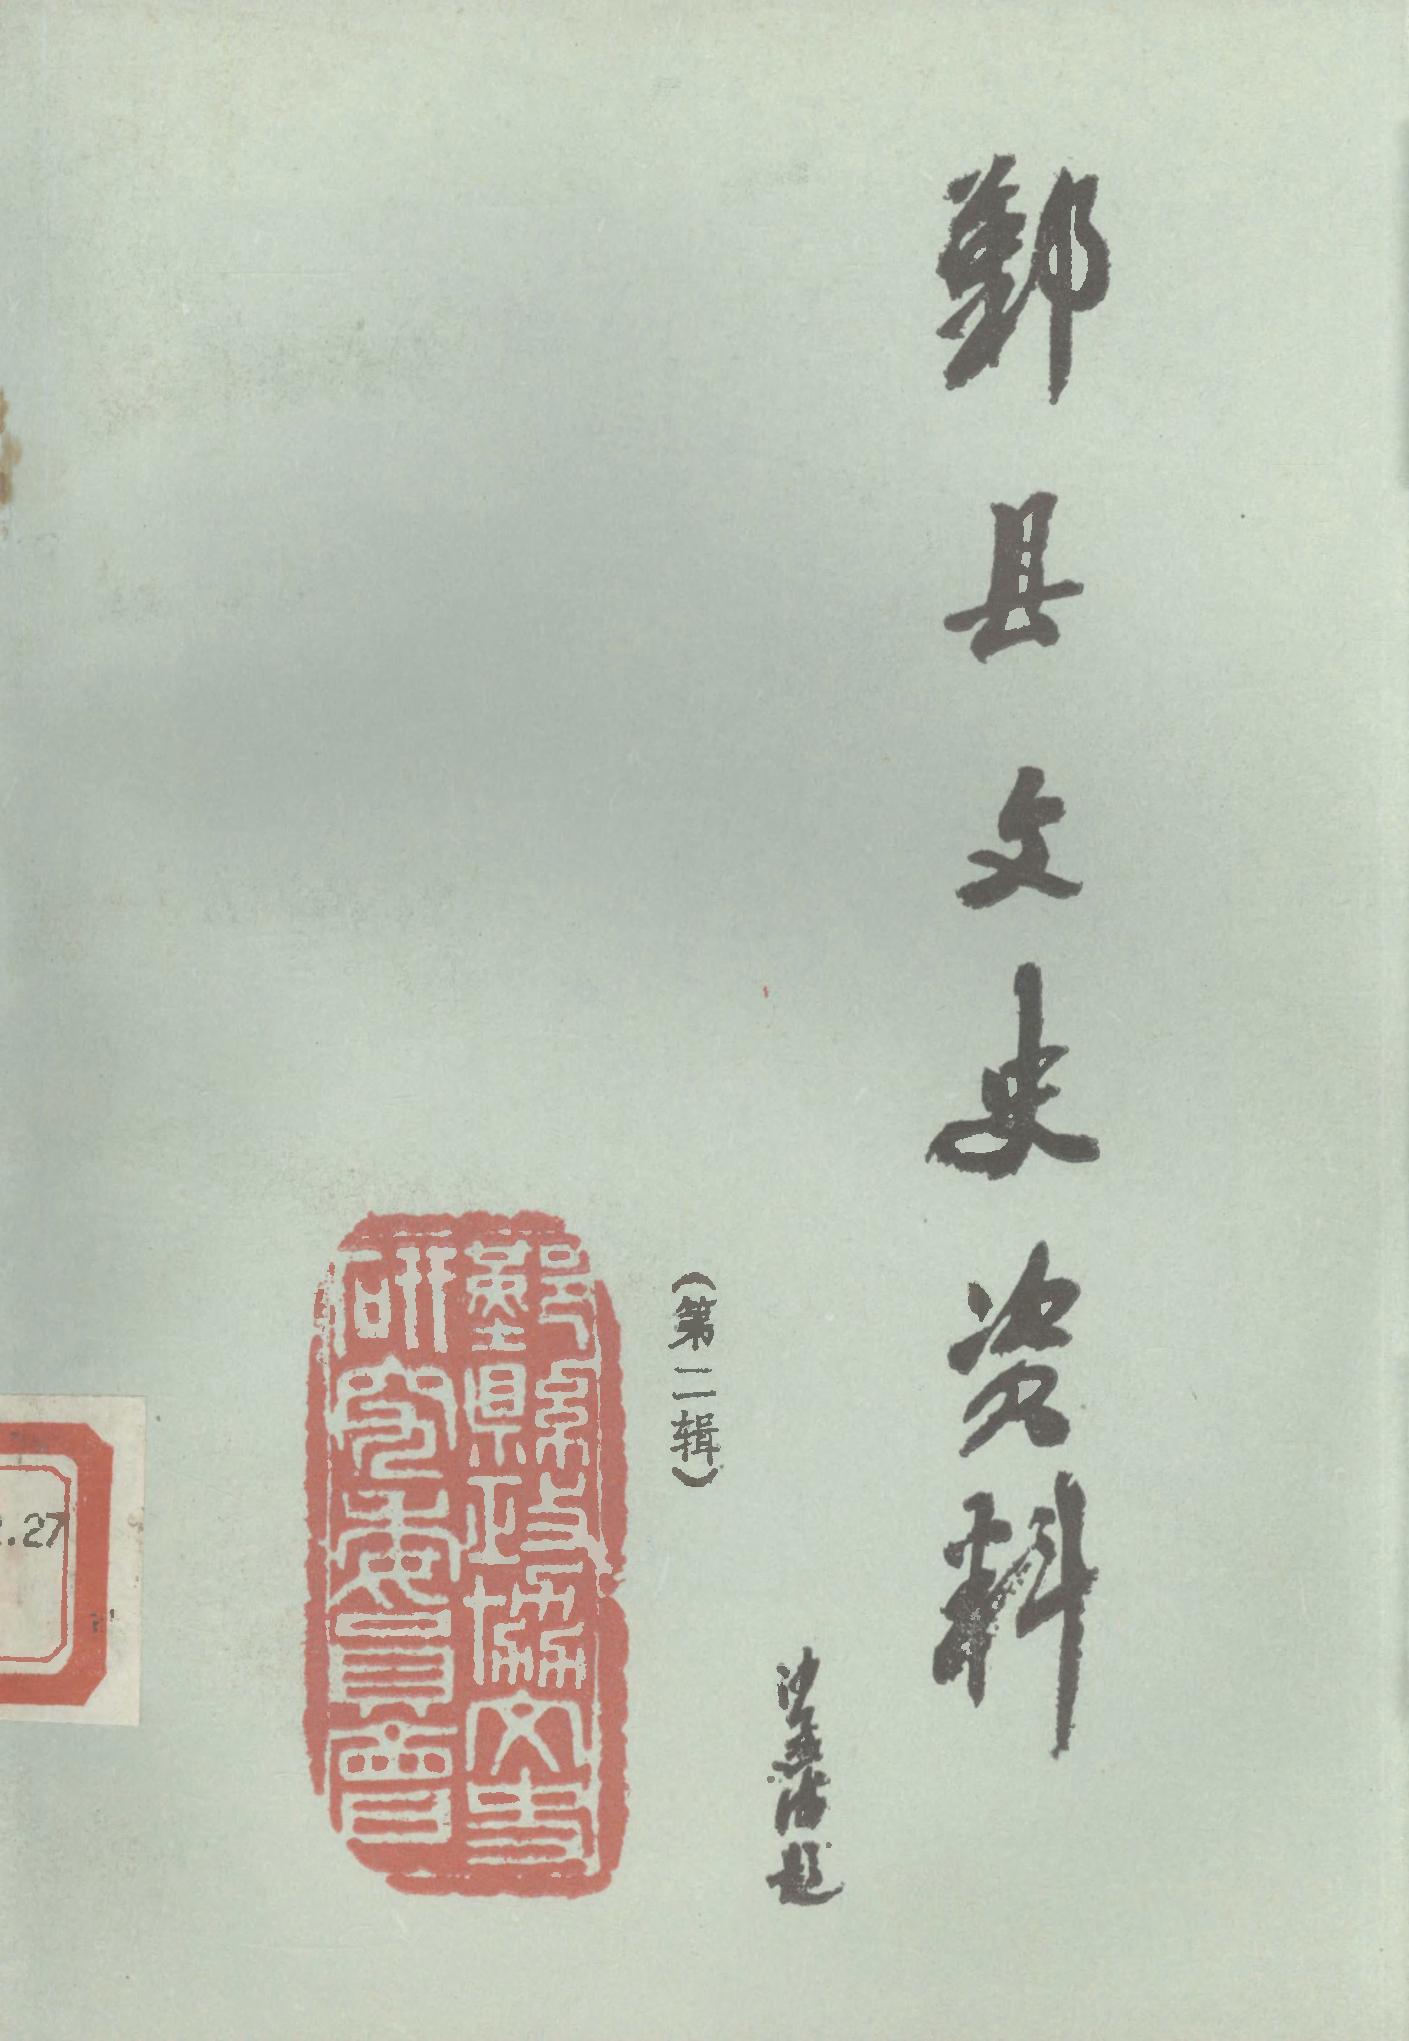 鄞县文史资料
沙孟海题
（第二辑）
鄞縣政協文史
研究委員會
.27